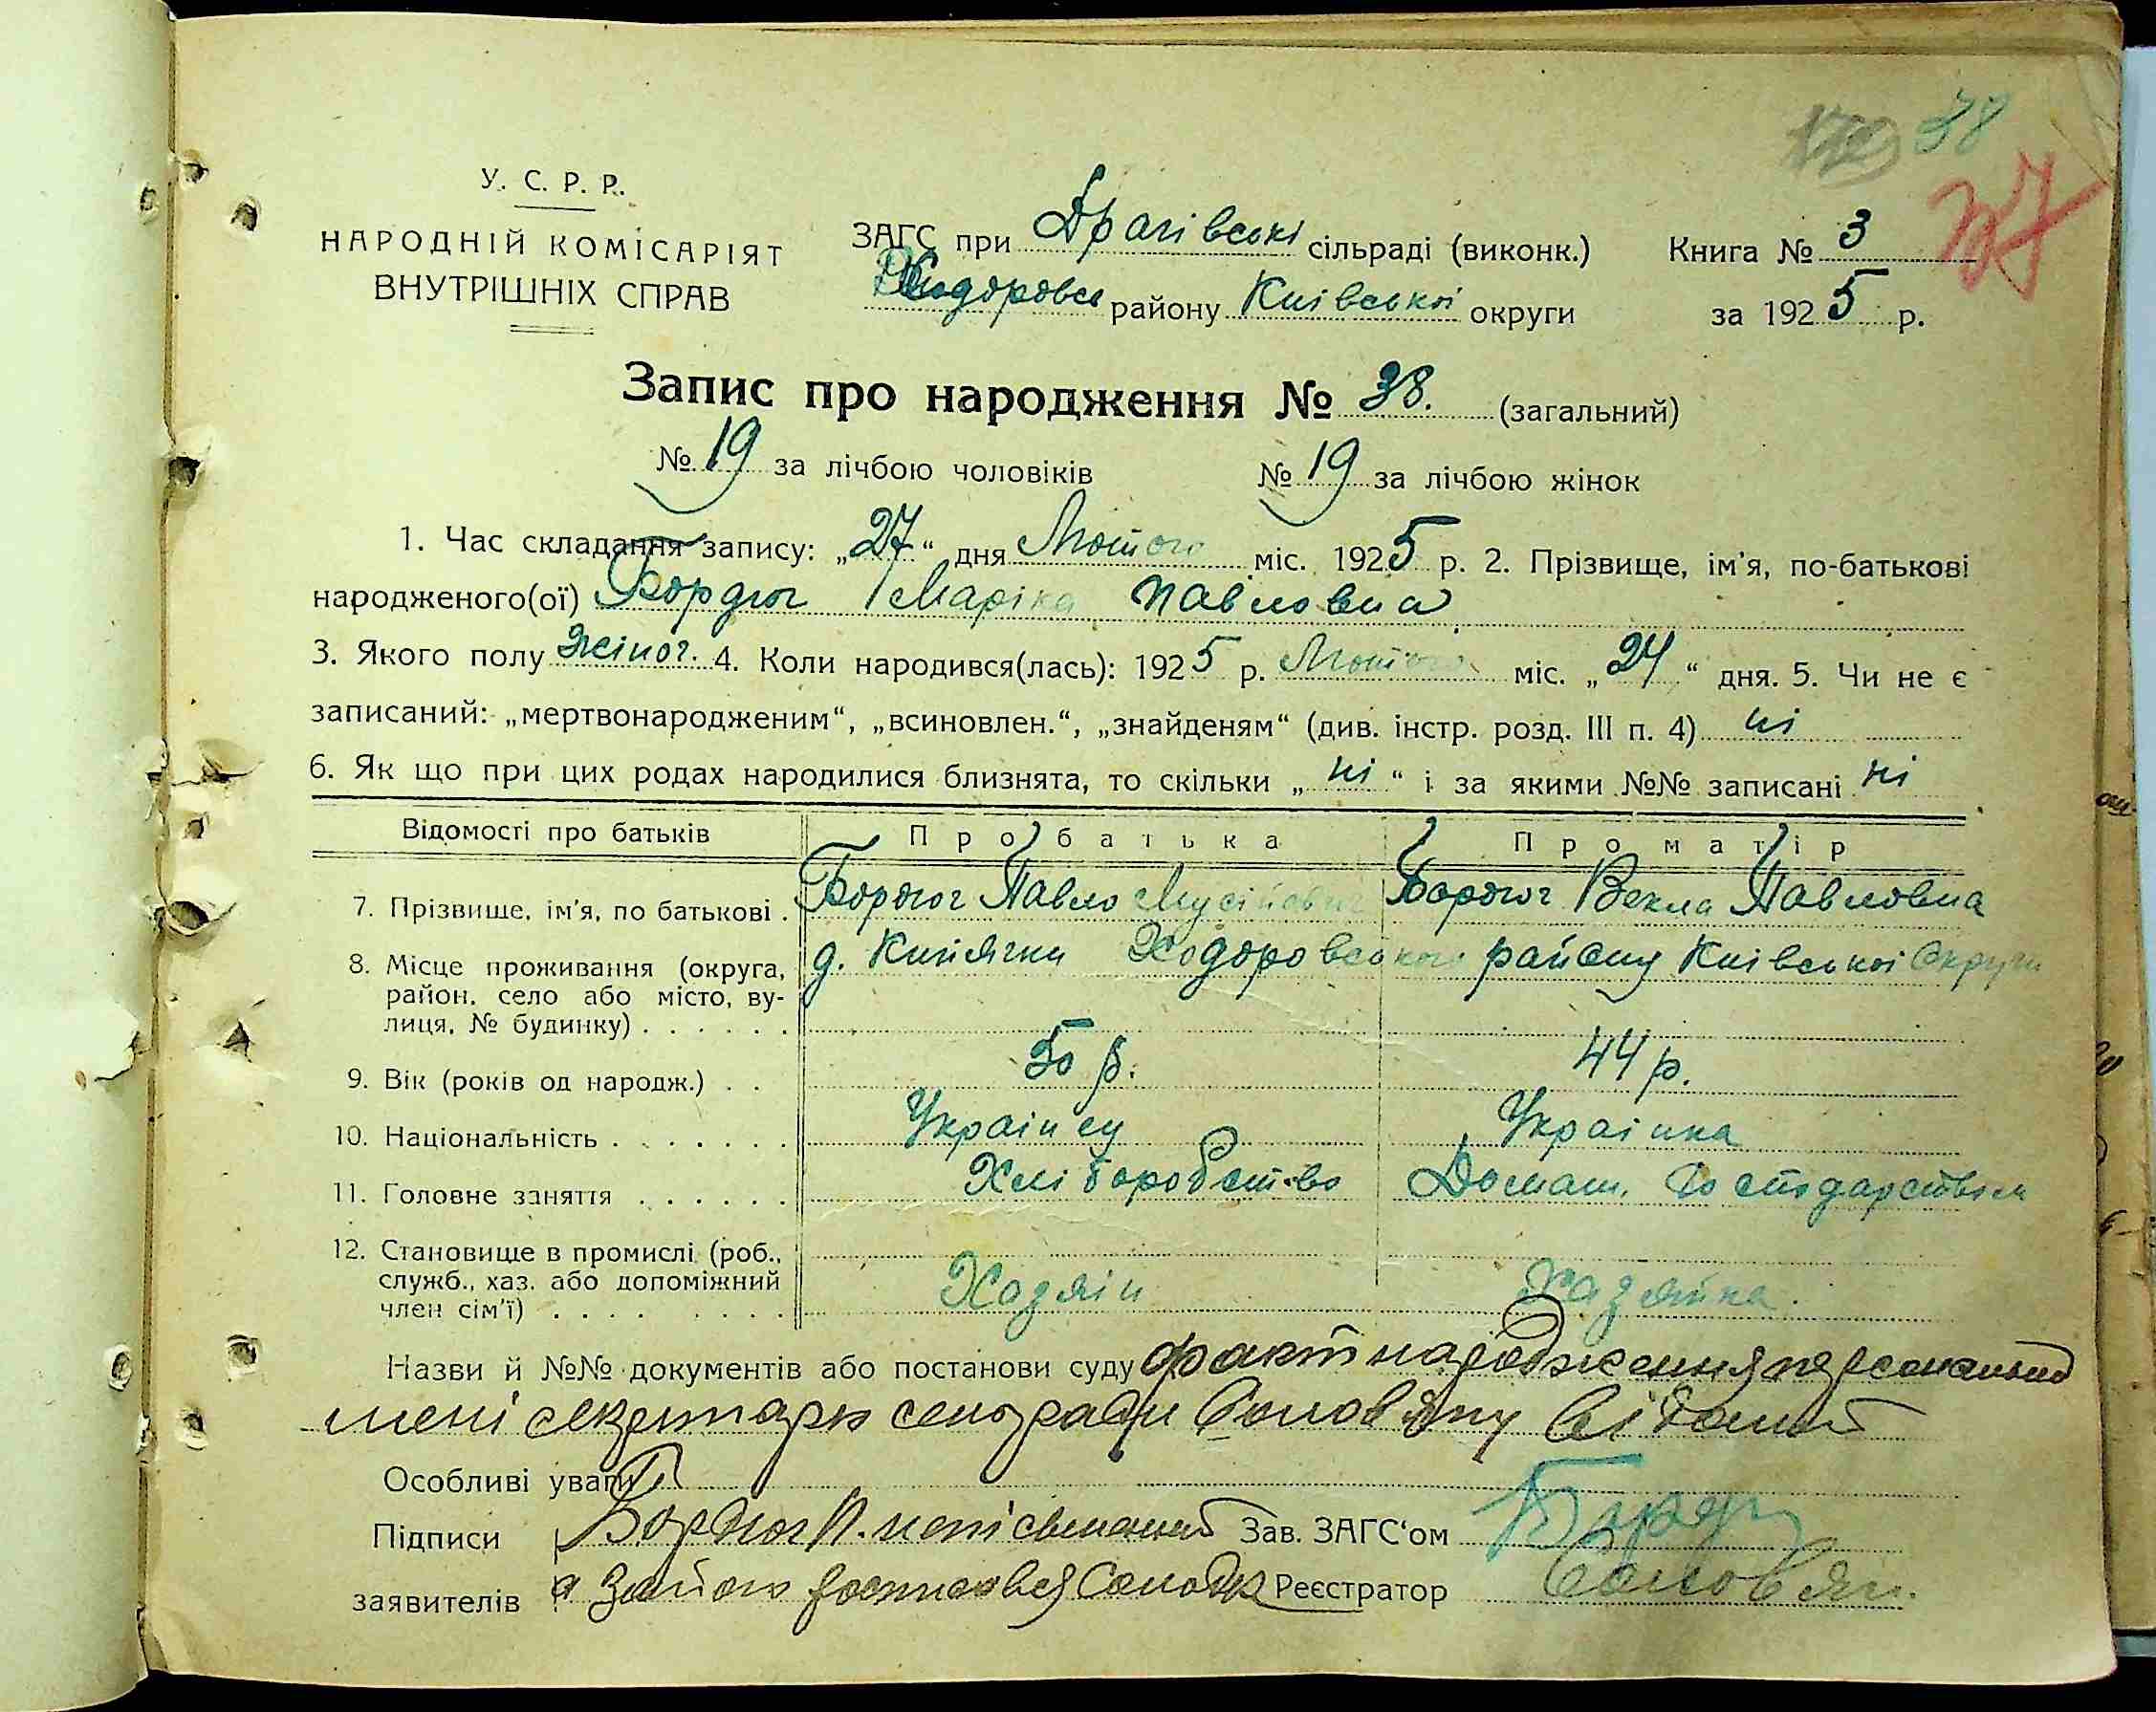 38
37
У. С. Р. Р.
НАРОДНІЙ КОМІСАРІЯТ
ВНУТРІШНІХ СПРАВ
ЗАГС при Драчівські сільраді (виконк.) Книга № 3
Ходоровсь району Київської округи за 1925 р.
Запис про народження № 38. (загальний)
№ 19 за лічбою чоловіків № 19 за лічбою жінок
1. Час складання запису: „27“ дня Лютого міс. 1925 р. 2. Прізвище, ім'я, по-батькові
народженого(ої) Бордюг Марія Павловна
3. Якого полу жіноч. 4. Коли народився(лась): 1925 р. Лютого міс. „24“ дня. 5. Чи не є
записаний: „мертвонародженим“, „всиновлен.“, „знайденям“ (див. інстр. розд. III п. 4) ні
6. Як що при цих родах народилися близнята, то скільки „ні“ і за якими №№ записані ні
Відомості про батьків Про батька Про матір
7. Прізвище, ім'я, по батькові . Бордюг Павло Мусійович Бордюг Векла Павловна
8. Місце проживання (округа, д. Кийлячки Ходоровського району Київської Округи
район, село або місто, ву-
лиця, № будинку) . . . . . .
9. Вік (років од народж.) . . 50 р. 44 р.
10. Національність . . . . . . . Українец Українка
11. Головне заняття . . . . . . Хліборобство Домаш. Господарством
12. Становище в промислі (роб.,
служб., хаз. або допоміжний Хозяїн Хазяйка.
член сім'ї) . . . . . . . . .
Назви й №№ документів або постанови суду факт народження персонально
мені секретарю сельради відомий
Особливі уваги
Підписи Бордюг П. неписьменний Зав. ЗАГС'ом
заявителів а за його Реєстратор